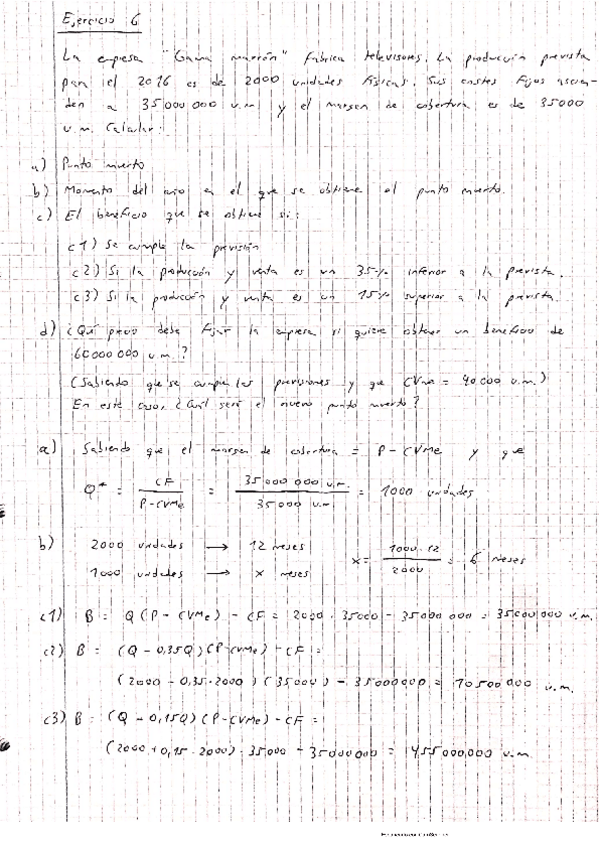 Ejercicio 6
La empresa "Gama marrón" fabrica televisores. La producción prevista
para el 2016 es de 2000 unidades físicas. Sus costes fijos ascien-
den a 35 000 000 u.m y el margen de cobertura es de 35000
u.m. Calcular:
a) Punto muerto
b) Momento del año en el que se obtiene el punto muerto.
c) El beneficio que se obtiene si:
c1) Se cumple la previsión
c2) Si la producción y venta es un 35% inferior a la prevista.
c3) Si la producción y venta es un 15% superior a la prevista.
d) ¿Qué precio debe fijar la empresa si quiere obtener un beneficio de
60000000 u.m?
(Sabiendo que se cumplen las previsiones y que CVme = 40.000 u.m.)
En este caso, ¿Cuál será el nuevo punto muerto?
a) Sabiendo que el margen de cobertura = P - CVMe y que
Q* = CF / P-CVMe = 35 000 000 u.m. / 35 000 u.m = 1000 unidades
b) 2000 unidades → 12 meses
1000 unidades → x meses
x = 1000·12 / 2000 = 6 meses
c1) B = Q (P - CVMe) - CF = 2000 · 35000 - 35000 000 = 35000000 u.m.
c2) B = (Q - 0,35Q)(P-CVMe) - CF =
(2000 - 0,35·2000)(35000) - 35000000 = 10500000 u.m.
c3) B = (Q - 0,15Q)(P-CVMe) - CF =
(2000 + 0,15 · 2000) · 35000 - 35000000 = 455000,000 u.m